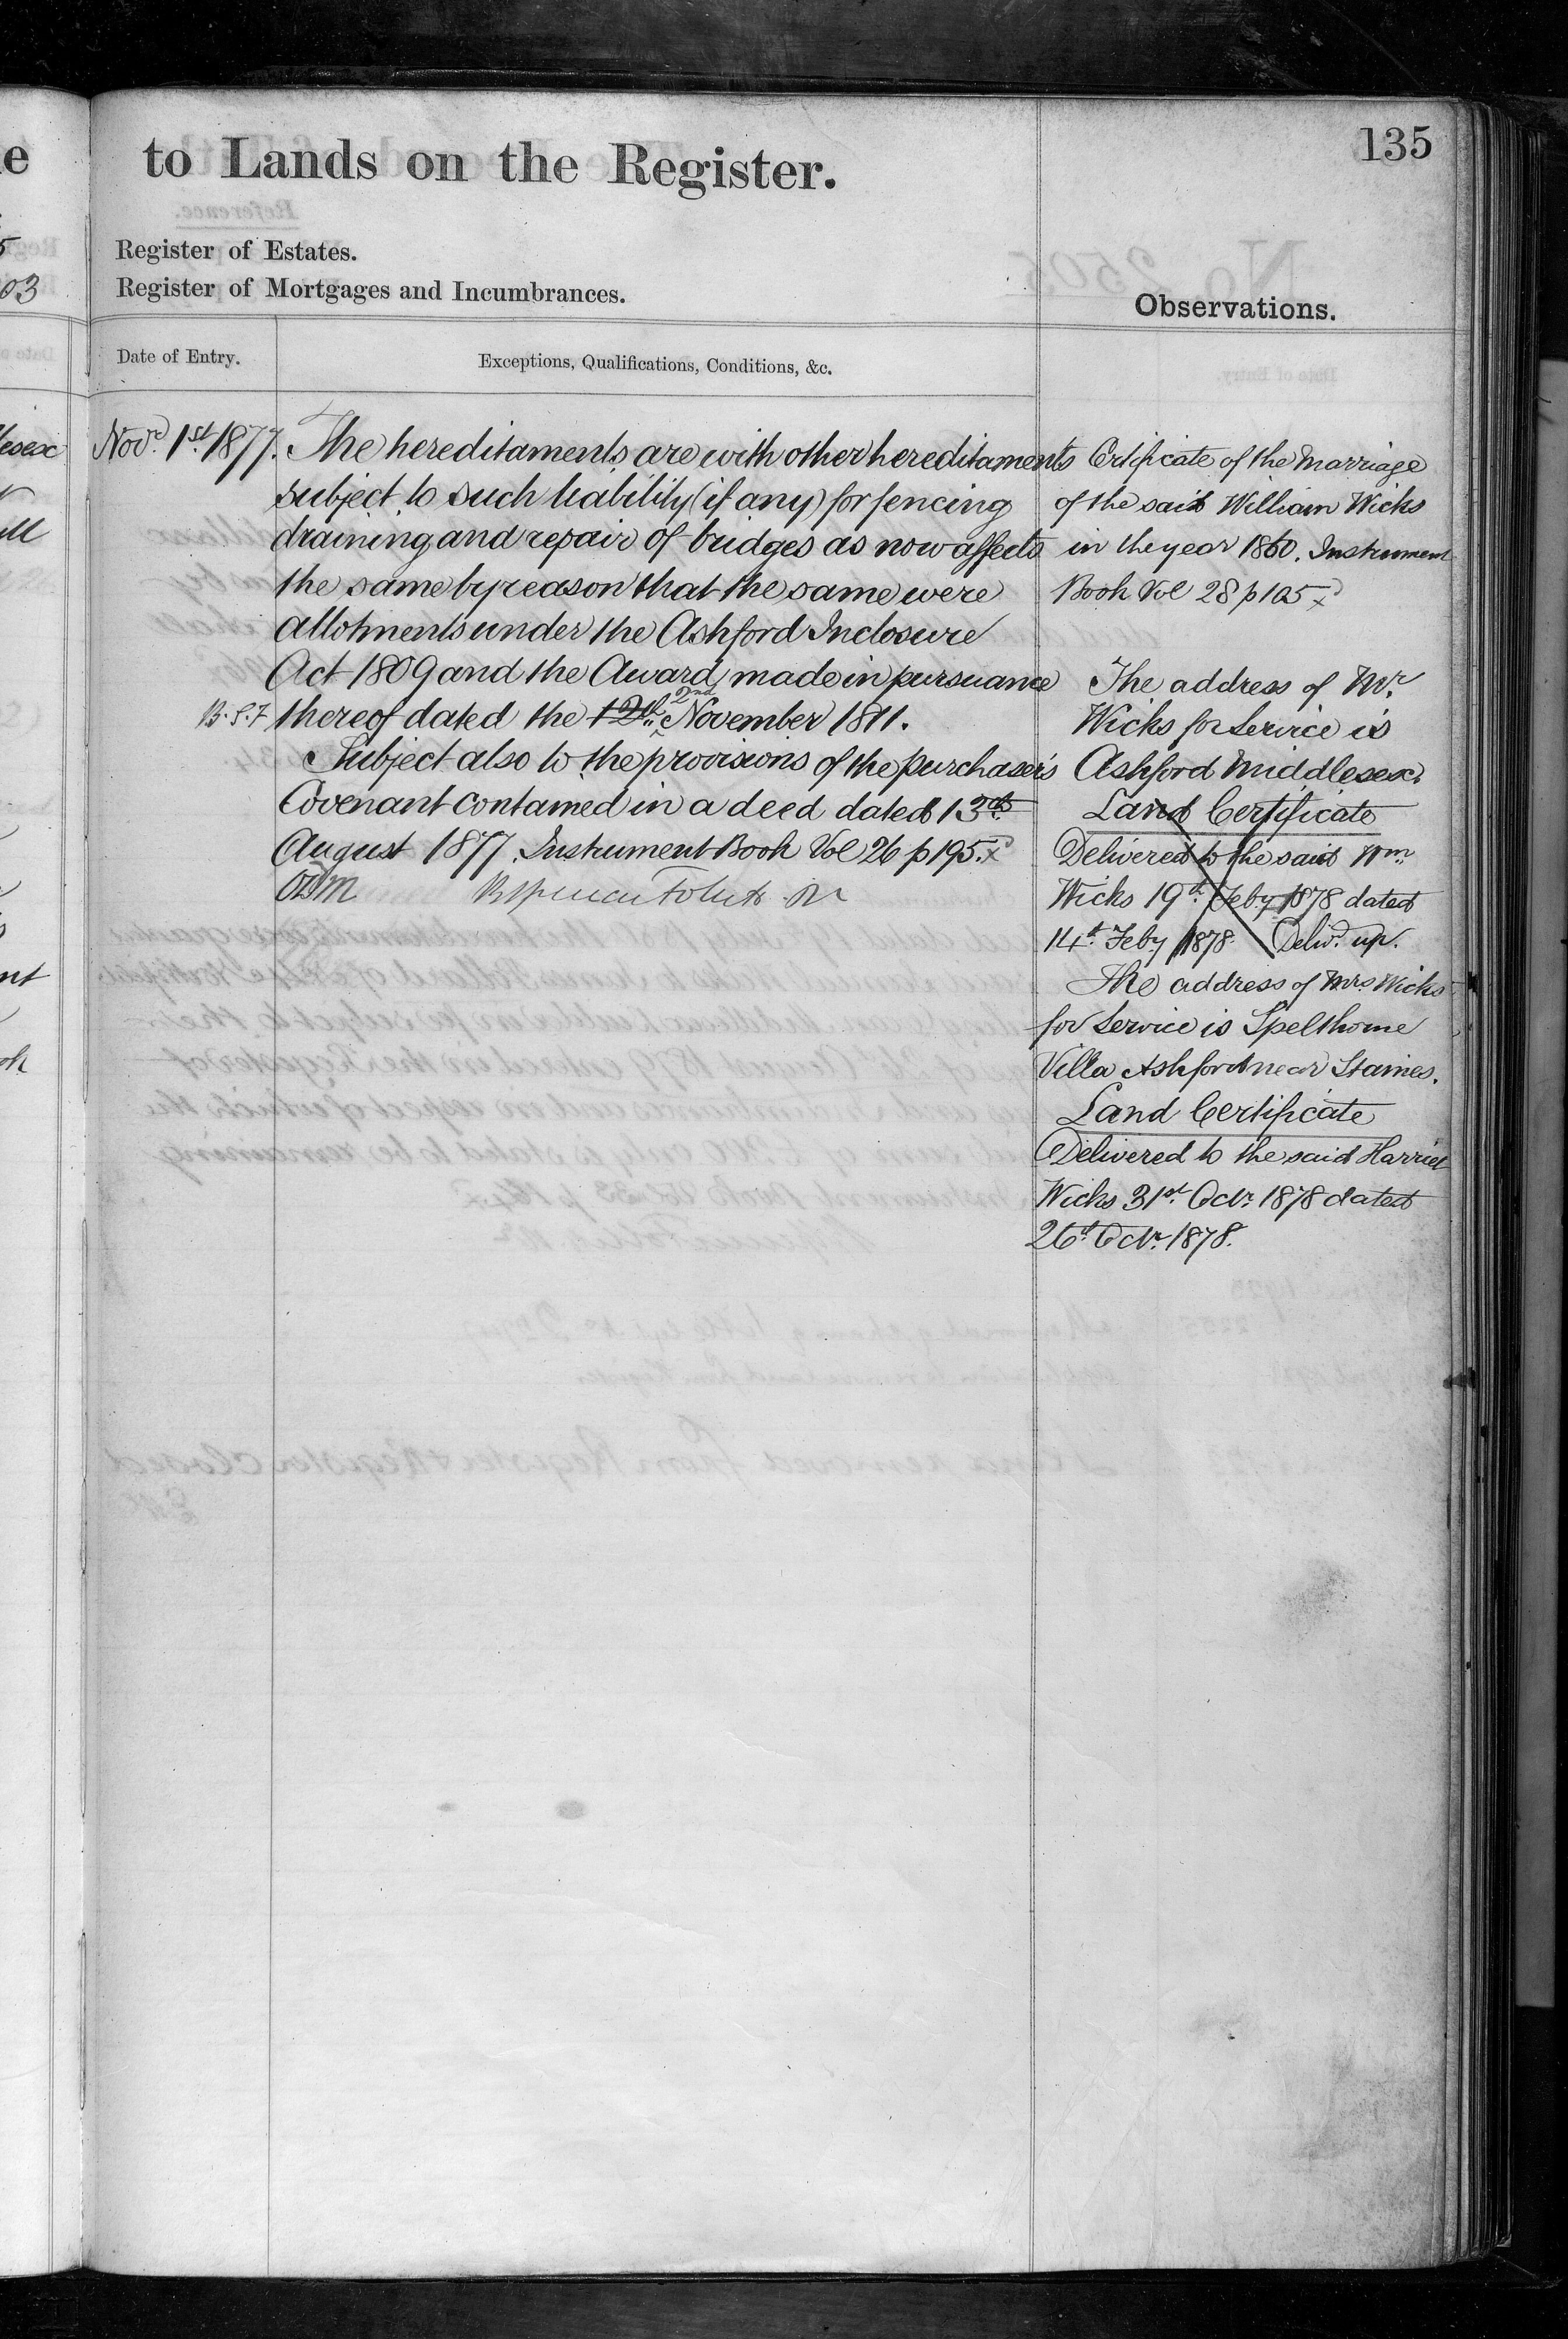 to Lands on the Register.
135
Register of Estates.
Register of Mortgages and Incumbrances.
Observations.
Date of Entry.
Exceptions, Qualifications, Conditions, &c.
Novr. 1st. 1877.
The hereditaments are with other hereditaments
subject to such liability (if any) for fencing
draining and repair of bridges as now affects
the same by reason that the same were
allotments under the Ashford Inclosure
Act 1809 and the Award made in pursuance
B.S.F thereof dated the 12th. 2nd November 1811.
Subject also to the provisions of the purchaser's
Covenant contained in a deed dated 13th.
August 1877. Instrument Book Vol 26 p 195. x
Certificate of the Marriage
of the said William Wicks
in the year 1860. Instrument
Book Vol 28 p 105 x
The address of Mr.
Wicks for Service is
Ashford Middlesex.
Land Certificate
Delivered to the said Wm.
Wicks 19th. Feby 1878 dated
14th. Feby 1878. Delivd. up.
The address of Mrs Wicks
for Service is Spelthorne
Villa Ashford near Staines.
Land Certificate
Delivered to the said Harriet
Wicks 31st. Octr. 1878 dated
26th. Octr. 1878.